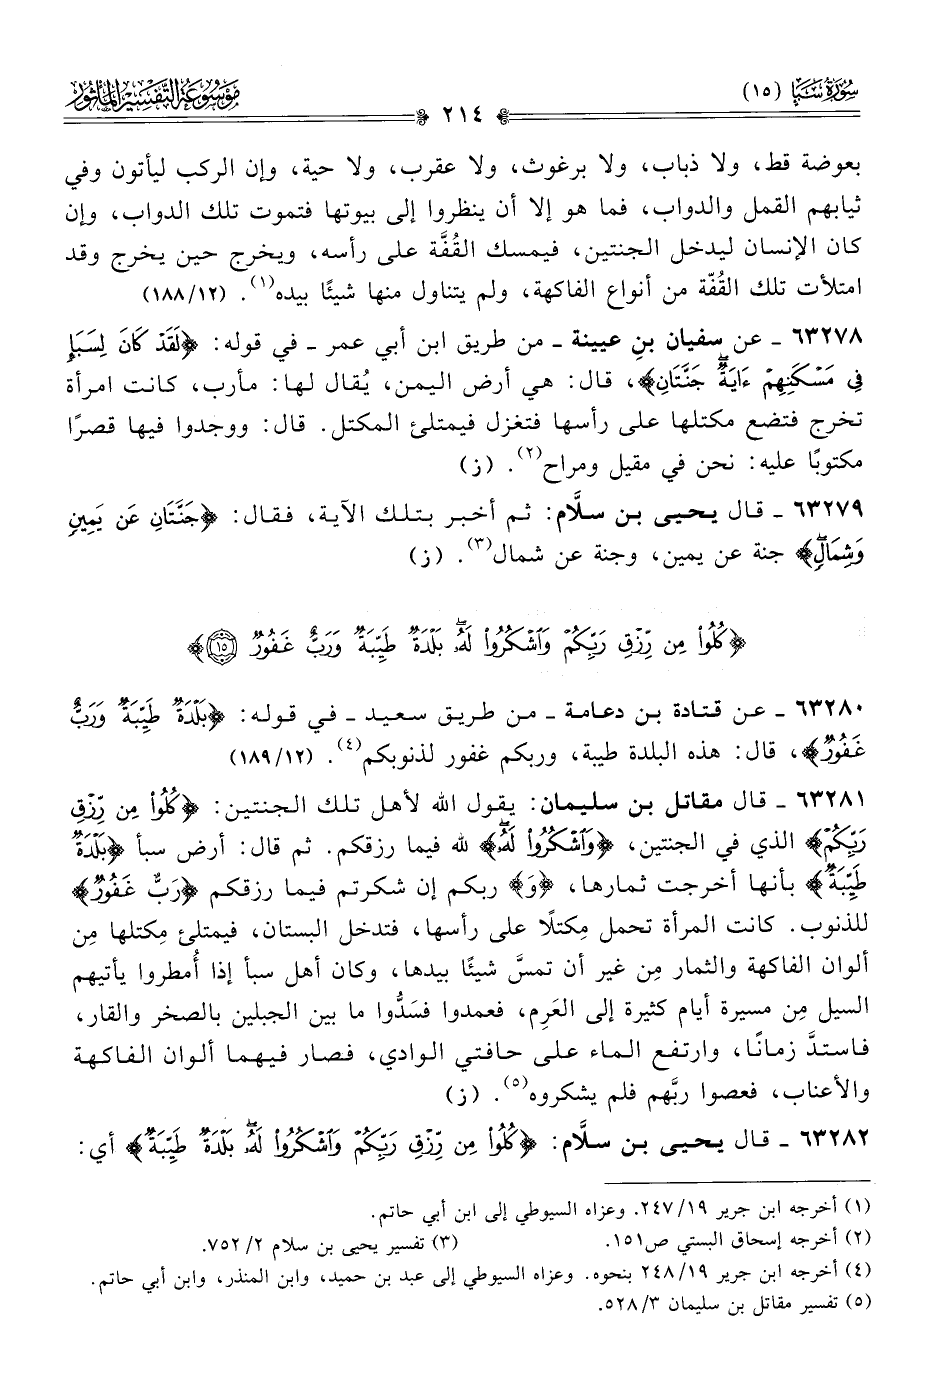 سُورَةُ سَبَإٍ (١٥)
٢١٤
مَوْسُوعَةُ التَّفْسِيرِ المَأْثُورِ
بعوضة قط، ولا ذباب، ولا برغوث، ولا عقرب، ولا حية، وإن الركب ليأتون وفي
ثيابهم القمل والدواب، فما هو إلا أن ينظروا إلى بيوتها فتموت تلك الدواب، وإن
كان الإنسان ليدخل الجنتين، فيمسك القُفَّة على رأسه، ويخرج حين يخرج وقد
امتلأت تلك القُفّة من أنواع الفاكهة، ولم يتناول منها شيئًا بيده(١). (١٨٨/١٢)
٦٣٢٧٨ ـ عن سفيان بنِ عيينة ـ من طريق ابن أبي عمر ـ في قوله: ﴿لَقَدْ كَانَ لِسَبَإٍ
فِى مَسْكَنِهِمْ ءَايَةٌۖ جَنَّتَانِ﴾، قال: هي أرض اليمن، يُقال لها: مأرب، كانت امرأة
تخرج فتضع مكتلها على رأسها فتغزل فيمتلئ المكتل. قال: ووجدوا فيها قصرًا
مكتوبًا عليه: نحن في مقيل ومراح(٢). (ز)
٦٣٢٧٩ ـ قال يحيى بن سلَّام: ثم أخبر بتلك الآية، فقال: ﴿جَنَّتَانِ عَن يَمِينٍ
وَشِمَالٍۖ﴾ جنة عن يمين، وجنة عن شمال(٣). (ز)
﴿كُلُوا۟ مِن رِّزْقِ رَبِّكُمْ وَٱشْكُرُوا۟ لَهُۥۚ بَلْدَةٌ طَيِّبَةٌ وَرَبٌّ غَفُورٌ ١٥﴾
٦٣٢٨٠ ـ عن قتادة بن دعامة ـ من طريق سعيد ـ في قوله: ﴿بَلْدَةٌ طَيِّبَةٌ وَرَبٌّ
غَفُورٌ﴾، قال: هذه البلدة طيبة، وربكم غفور لذنوبكم(٤). (١٨٩/١٢)
٦٣٢٨١ ـ قال مقاتل بن سليمان: يقول الله لأهل تلك الجنتين: ﴿كُلُوا۟ مِن رِّزْقِ
رَبِّكُمْ﴾ الذي في الجنتين، ﴿وَٱشْكُرُوا۟ لَهُۥۚ﴾ لله فيما رزقكم. ثم قال: أرض سبأ ﴿بَلْدَةٌ
طَيِّبَةٌ﴾ بأنها أخرجت ثمارها، ﴿وَ﴾ ربكم إن شكرتم فيما رزقكم ﴿رَبٌّ غَفُورٌ﴾
للذنوب. كانت المرأة تحمل مِكتلًا على رأسها، فتدخل البستان، فيمتلئ مِكتلها مِن
ألوان الفاكهة والثمار مِن غير أن تمسَّ شيئًا بيدها، وكان أهل سبأ إذا أُمطروا يأتيهم
السيل مِن مسيرة أيام كثيرة إلى العَرِم، فعمدوا فسَدُّوا ما بين الجبلين بالصخر والقار،
فاستدَّ زمانًا، وارتفع الماء على حافتي الوادي، فصار فيهما ألوان الفاكهة
والأعناب، فعصوا ربَّهم فلم يشكروه(٥). (ز)
٦٣٢٨٢ ـ قال يحيى بن سلَّام: ﴿كُلُوا۟ مِن رِّزْقِ رَبِّكُمْ وَٱشْكُرُوا۟ لَهُۥۚ بَلْدَةٌ طَيِّبَةٌ﴾ أي:
(١) أخرجه ابن جرير ٢٤٧/١٩. وعزاه السيوطي إلى ابن أبي حاتم.
(٢) أخرجه إسحاق البستي ص١٥١. (٣) تفسير يحيى بن سلام ٢/ ٧٥٢.
(٤) أخرجه ابن جرير ٢٤٨/١٩ بنحوه. وعزاه السيوطي إلى عبد بن حميد، وابن المنذر، وابن أبي حاتم.
(٥) تفسير مقاتل بن سليمان ٥٢٨/٣.